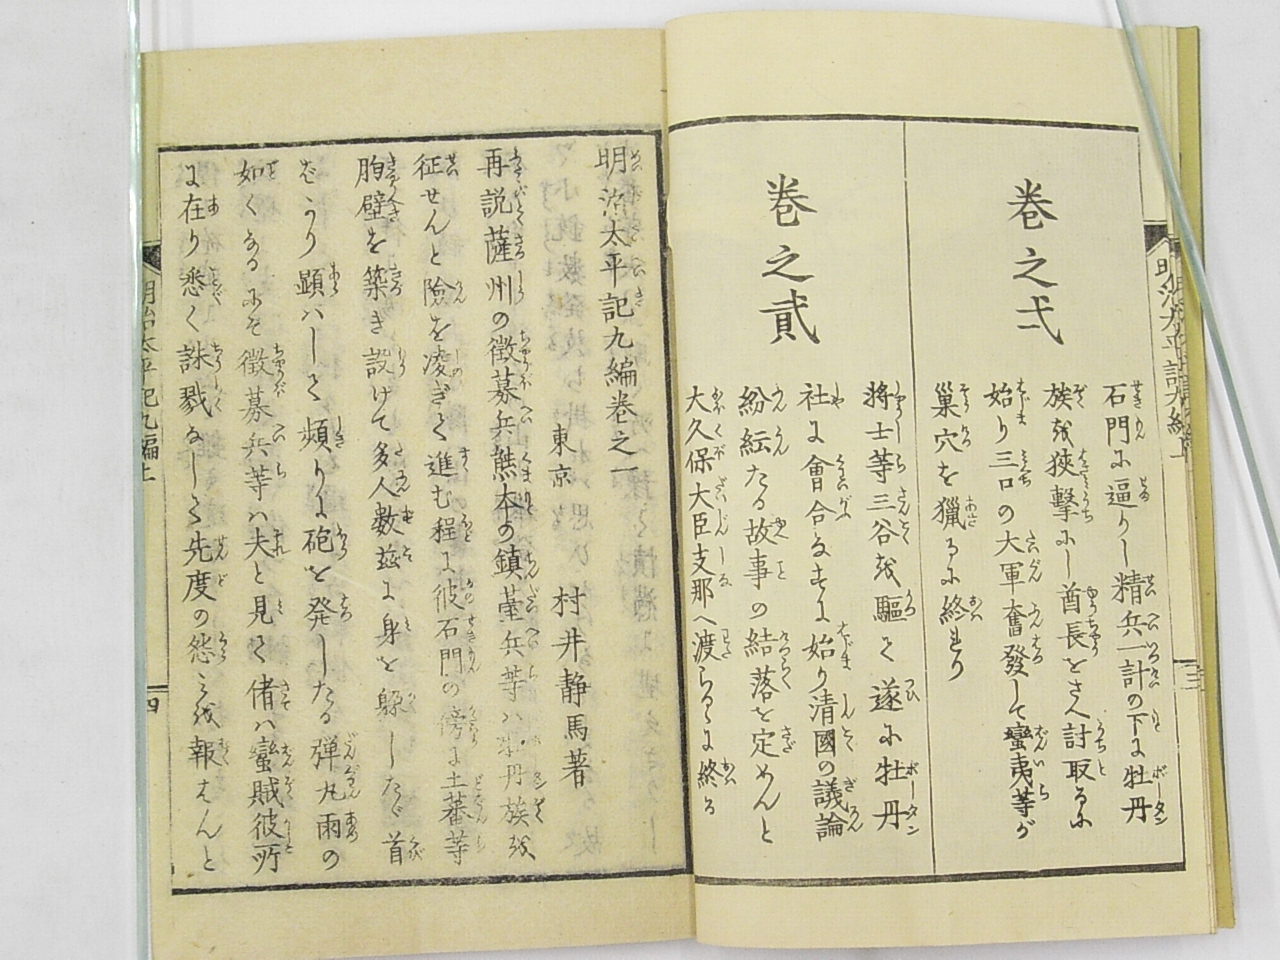 巻之弌
石門に逼りし精兵一計の下に牡丹
族を狭撃にし酋長をさへ討取るに
始り三口の大軍奮發して蠻夷等が
巣穴を獵るに終れり
巻之貳
将士等三谷を驅て遂に牡丹
社に會合なすに始り清國の議論
紛紜たる故事の結落を定めんと
大久保大臣支那へ渡らるゝに終る
明治太平記九編巻之一
東京 村井静馬著
再説薩州の徴募兵熊本の鎮臺兵等ハ牡丹族を
征せんと險を凌ぎて進む程に彼石門の傍に土蕃等
胸壁を築き設けて多人數茲に身を躱したゞ首
ばかり顕ハして頻りに砲を発したる弾丸雨の
如くなるにぞ徴募兵等ハ夫と見て偖ハ蠻賊彼所
に在り悉く誅戮なして先度の怨ミを報はんと
明治太平記九編上
四